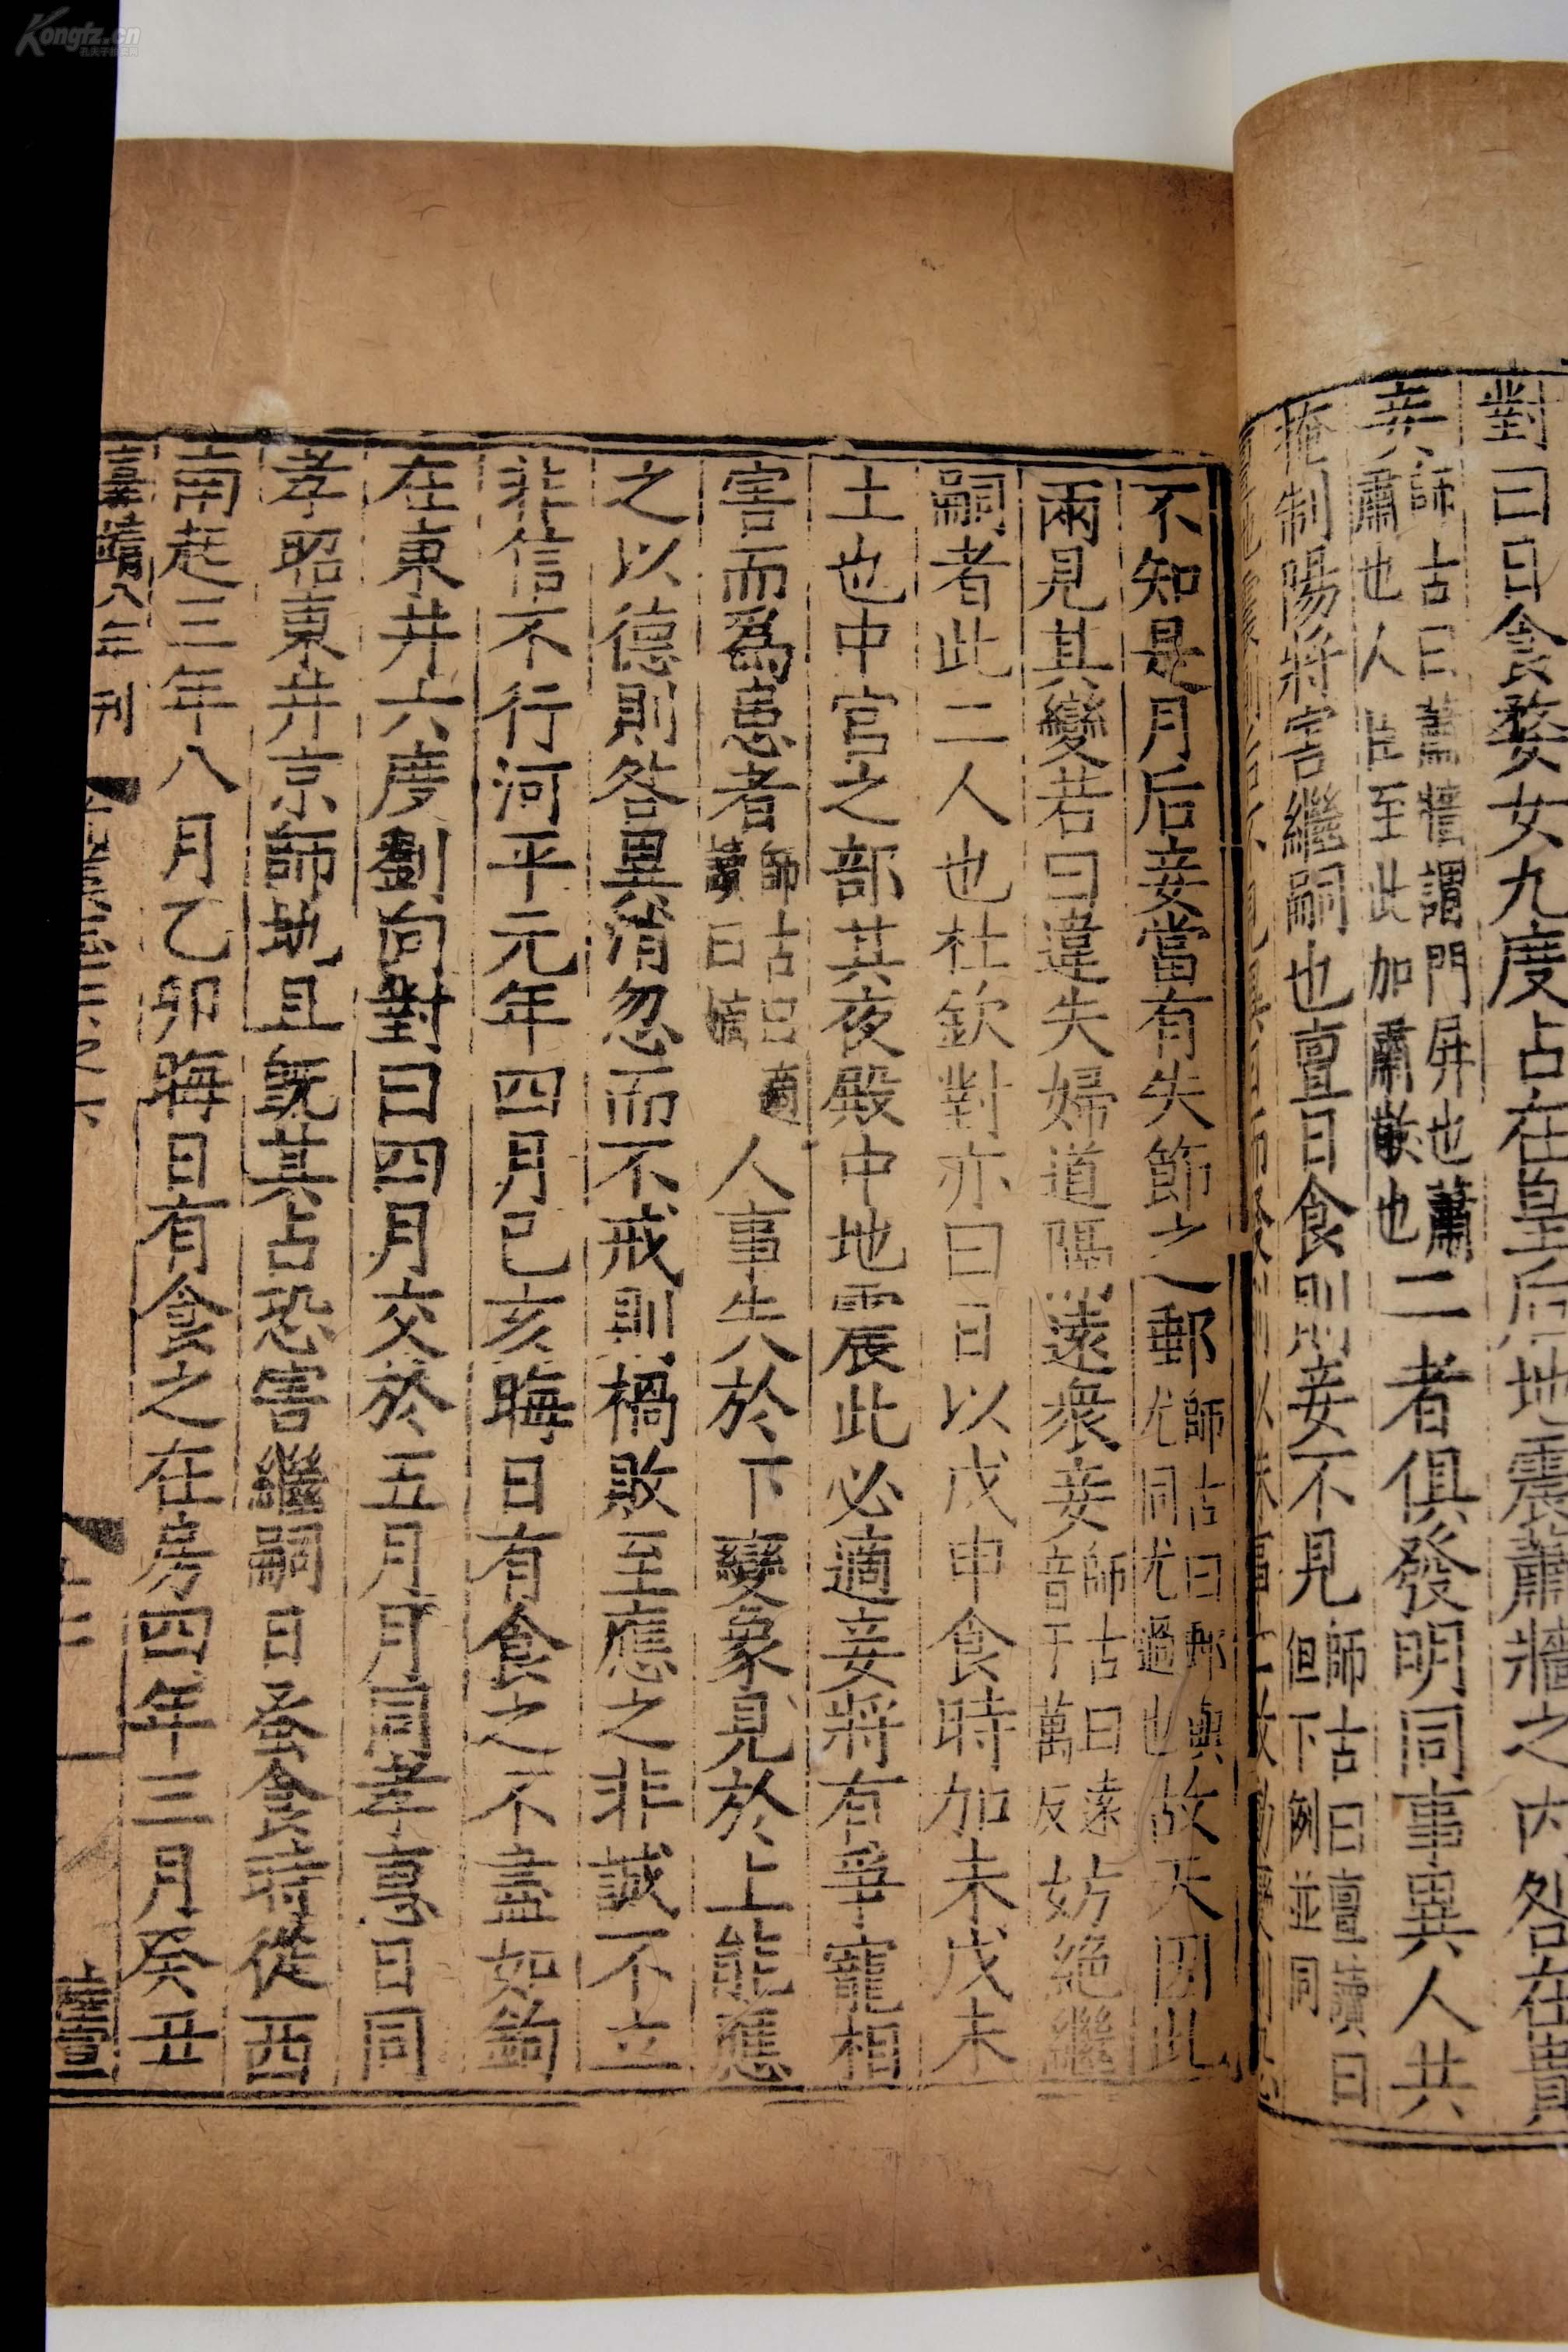 對曰日食婺女九度占在皇后地震蕭牆之内咎在貴
妾師古曰蕭牆謂門屏也蕭肅也人臣至此加肅敬也二者俱發明同事異人共
掩制陽將害繼嗣也亶日食則妾不見師古曰亶讀曰但下例並同
不知是月后妾當有失節之郵師古曰郵與尤同尤過也故天因此
兩見其變若曰違失婦道隔遠衆妾師古曰遠音于萬反妨絶繼
嗣者此二人也杜欽對亦曰日以戊申食時加未戊未
土也中宫之部其夜殿中地震此必適妾將有爭寵相
害而爲患者師古曰適讀曰嫡人事失於下變象見於上能應
之以德則咎異消忽而不戒則禍敗至應之非誠不立
非信不行河平元年四月己亥晦日有食之不盡如鉤
在東井六度劉向對曰四月交於五月月同孝惠日同
孝昭東井京師地且既其占恐害繼嗣日蚤食時從西
南起三年八月乙卯晦日有食之在房四年三月癸丑
嘉靖八年刊
志第七下之下
Kongfz.cn